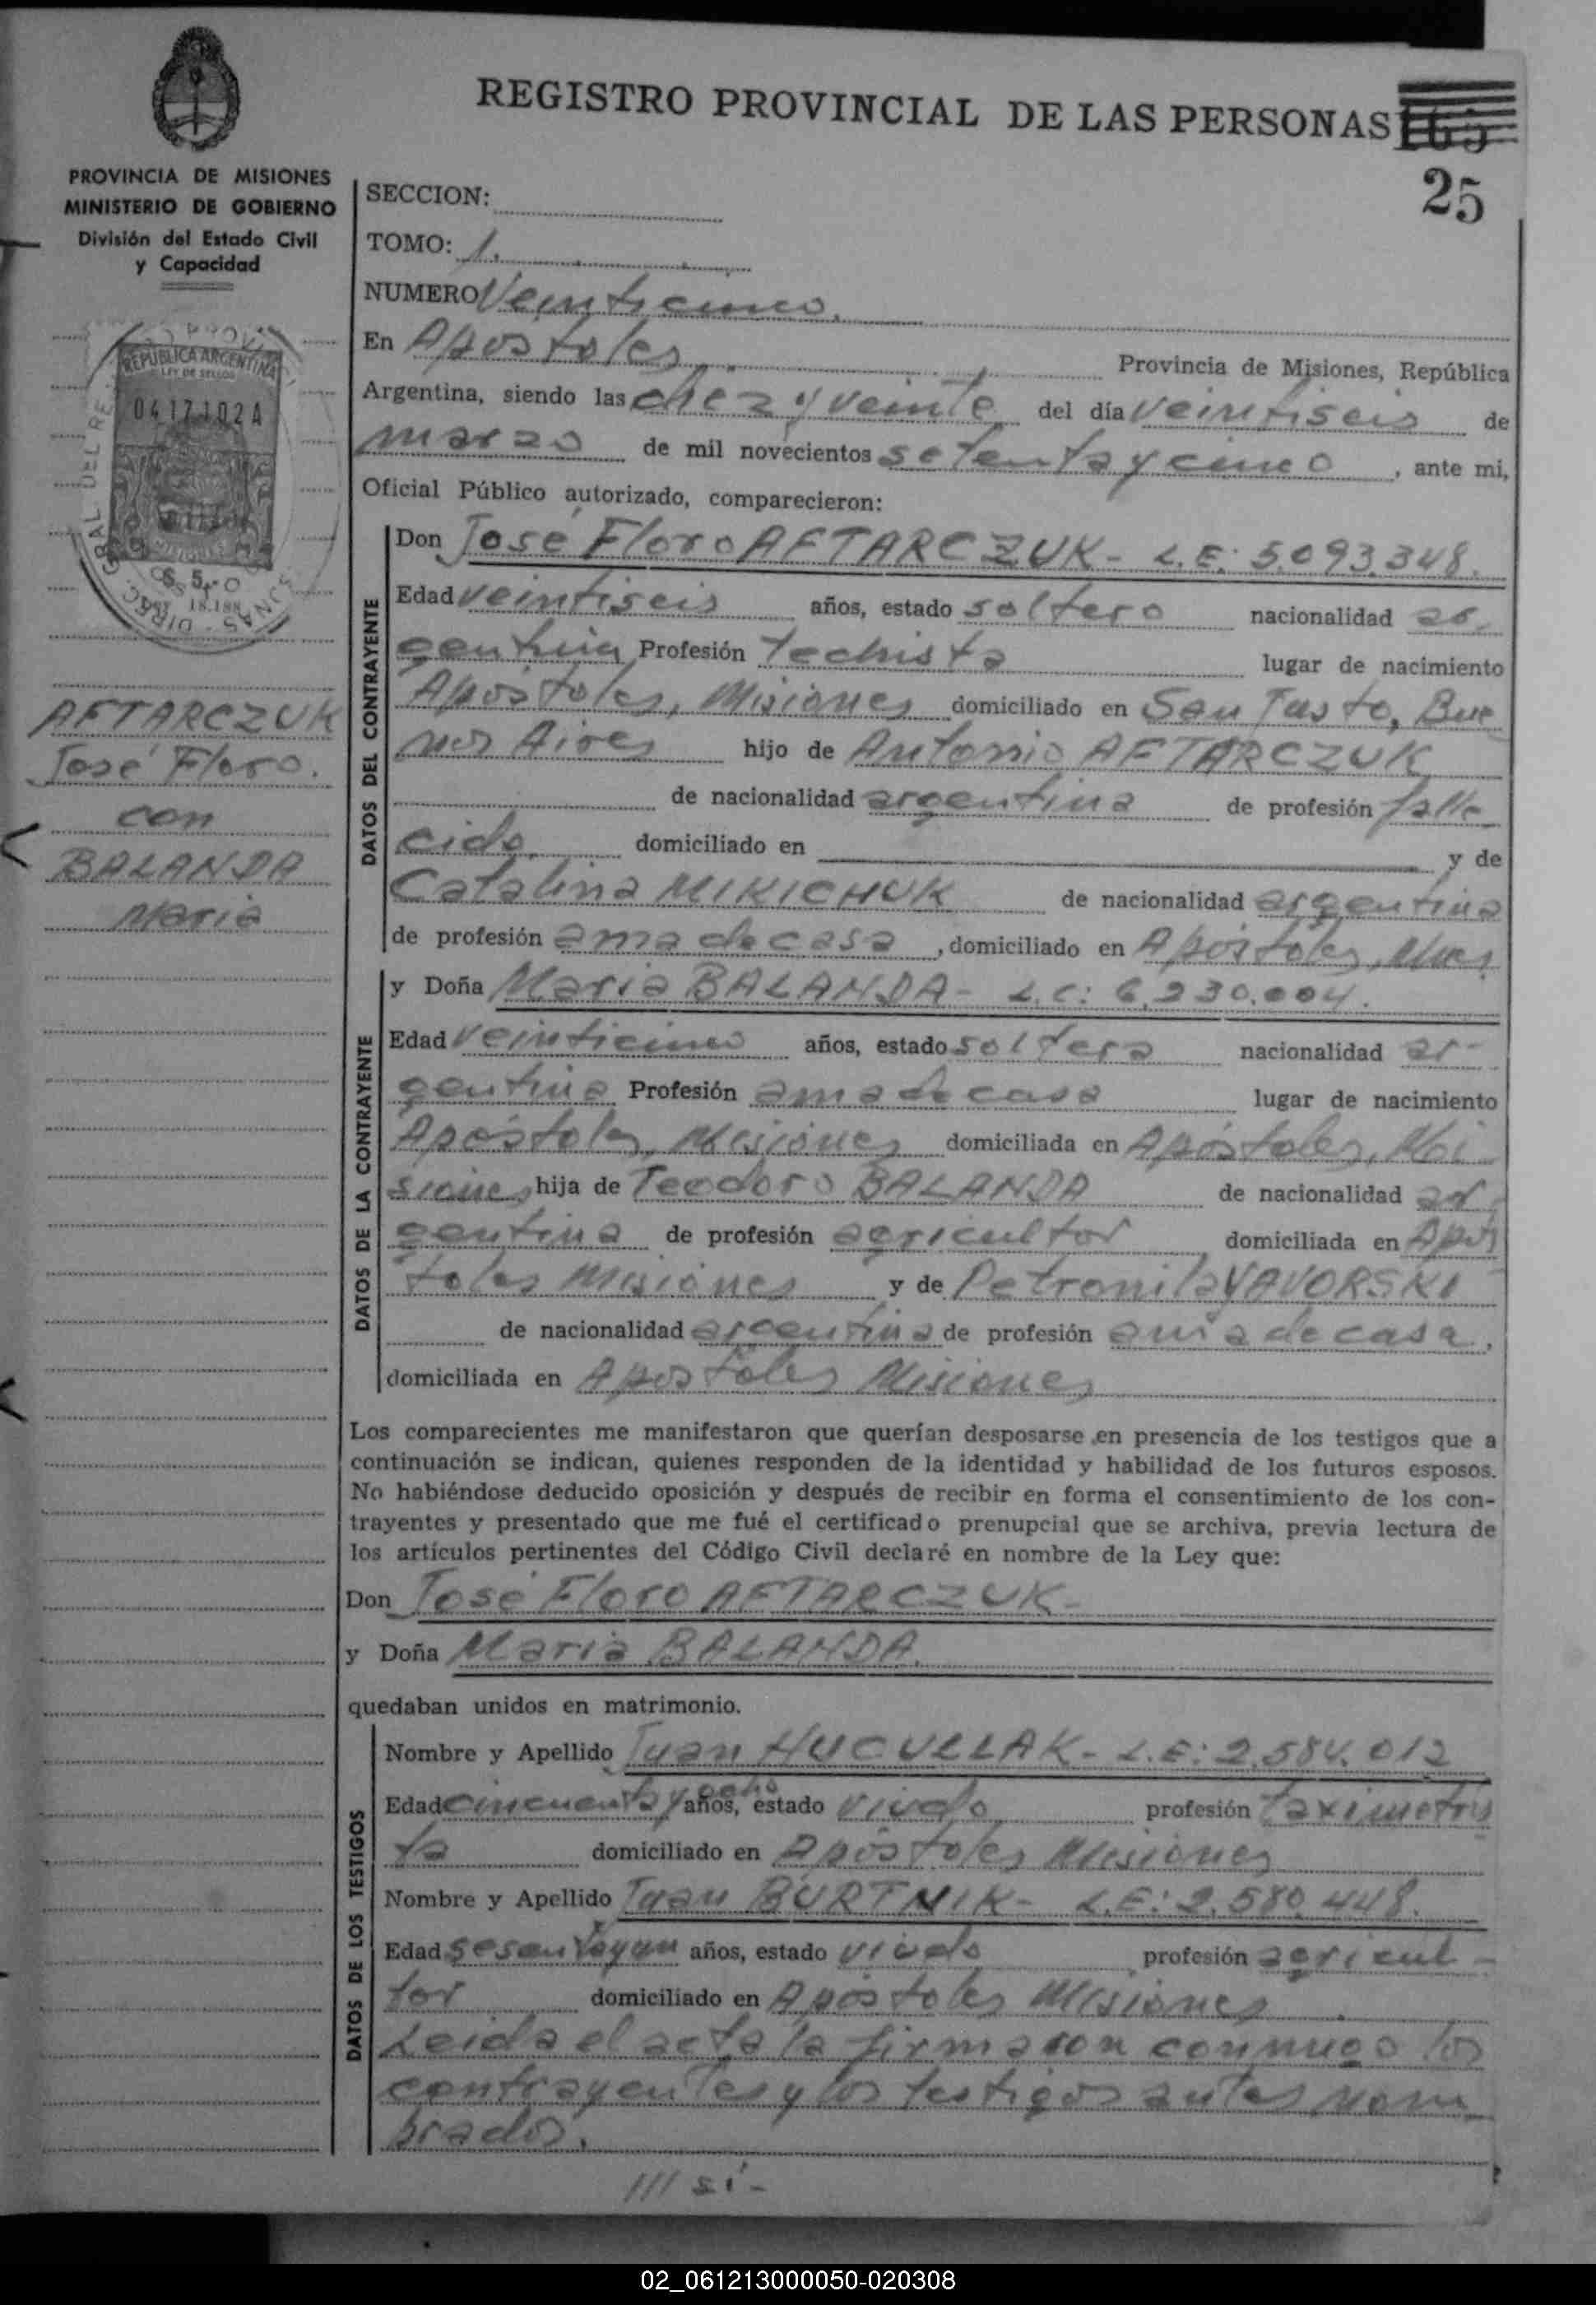 REGISTRO PROVINCIAL DE LAS PERSONAS 165
25
PROVINCIA DE MISIONES
MINISTERIO DE GOBIERNO
División del Estado Civil
y Capacidad
REPUBLICA ARGENTINA
LEY DE SELLOS
04171024
MISIONES
AFTARCZUK
José Floro.
con
BALANDA
Maria
SECCION:
TOMO: 1.
NUMERO Veinticinco.
En Apostoles, Provincia de Misiones, República
Argentina, siendo las diez y veinte del día veintiseis de
marzo de mil novecientos setenta y cinco, ante mi,
Oficial Público autorizado, comparecieron:
DATOS DEL CONTRAYENTE
Don José Floro AFTARCZUK - L.E: 5.093.348.
Edad veintiseis años, estado soltero nacionalidad ar-
gentina Profesión Techista lugar de nacimiento
Apóstoles, Misiones domiciliado en San Justo, Bue
nos Aires hijo de Antonio AFTARCZUK
de nacionalidad argentina de profesión falle
cido. domiciliado en y de
Catalina MIKICHUK de nacionalidad argentina
de profesión ama de casa, domiciliado en Apóstoles, Mnes
DATOS DE LA CONTRAYENTE
y Doña Maria BALANDA - L.C: 6.230.004.
Edad veinticinco años, estado soltera nacionalidad ar-
gentina Profesión ama de casa lugar de nacimiento
Apóstoles, Misiones domiciliada en Apóstoles, Mi
siones hija de Teodoro BALANDA de nacionalidad ar
gentina de profesión agricultor domiciliada en Após
toles Misiones y de Petronila YAVORSKI
de nacionalidad argentina de profesión ama de casa,
domiciliada en Apostoles Misiones
Los comparecientes me manifestaron que querían desposarse en presencia de los testigos que a
continuación se indican, quienes responden de la identidad y habilidad de los futuros esposos.
No habiéndose deducido oposición y después de recibir en forma el consentimiento de los con-
trayentes y presentado que me fué el certificado prenupcial que se archiva, previa lectura de
los artículos pertinentes del Código Civil declaré en nombre de la Ley que:
Don José Floro AFTARCZUK -
y Doña Maria BALANDA.
quedaban unidos en matrimonio.
DATOS DE LOS TESTIGOS
Nombre y Apellido Juan HUCULLAK - L.E: 2.584.012
Edad cincuenta y ocho años, estado viudo profesión taximetris
ta domiciliado en Apóstoles Misiones
Nombre y Apellido Juan BURTNIK - L.E: 2.580.448.
Edad sesenta y un años, estado viudo profesión agricul-
tor domiciliado en Apóstoles Misiones.
Leida el acta la firmaron conmigo los
contrayentes y los testigos antes nom
brados.
///si-
02_061213000050-020308